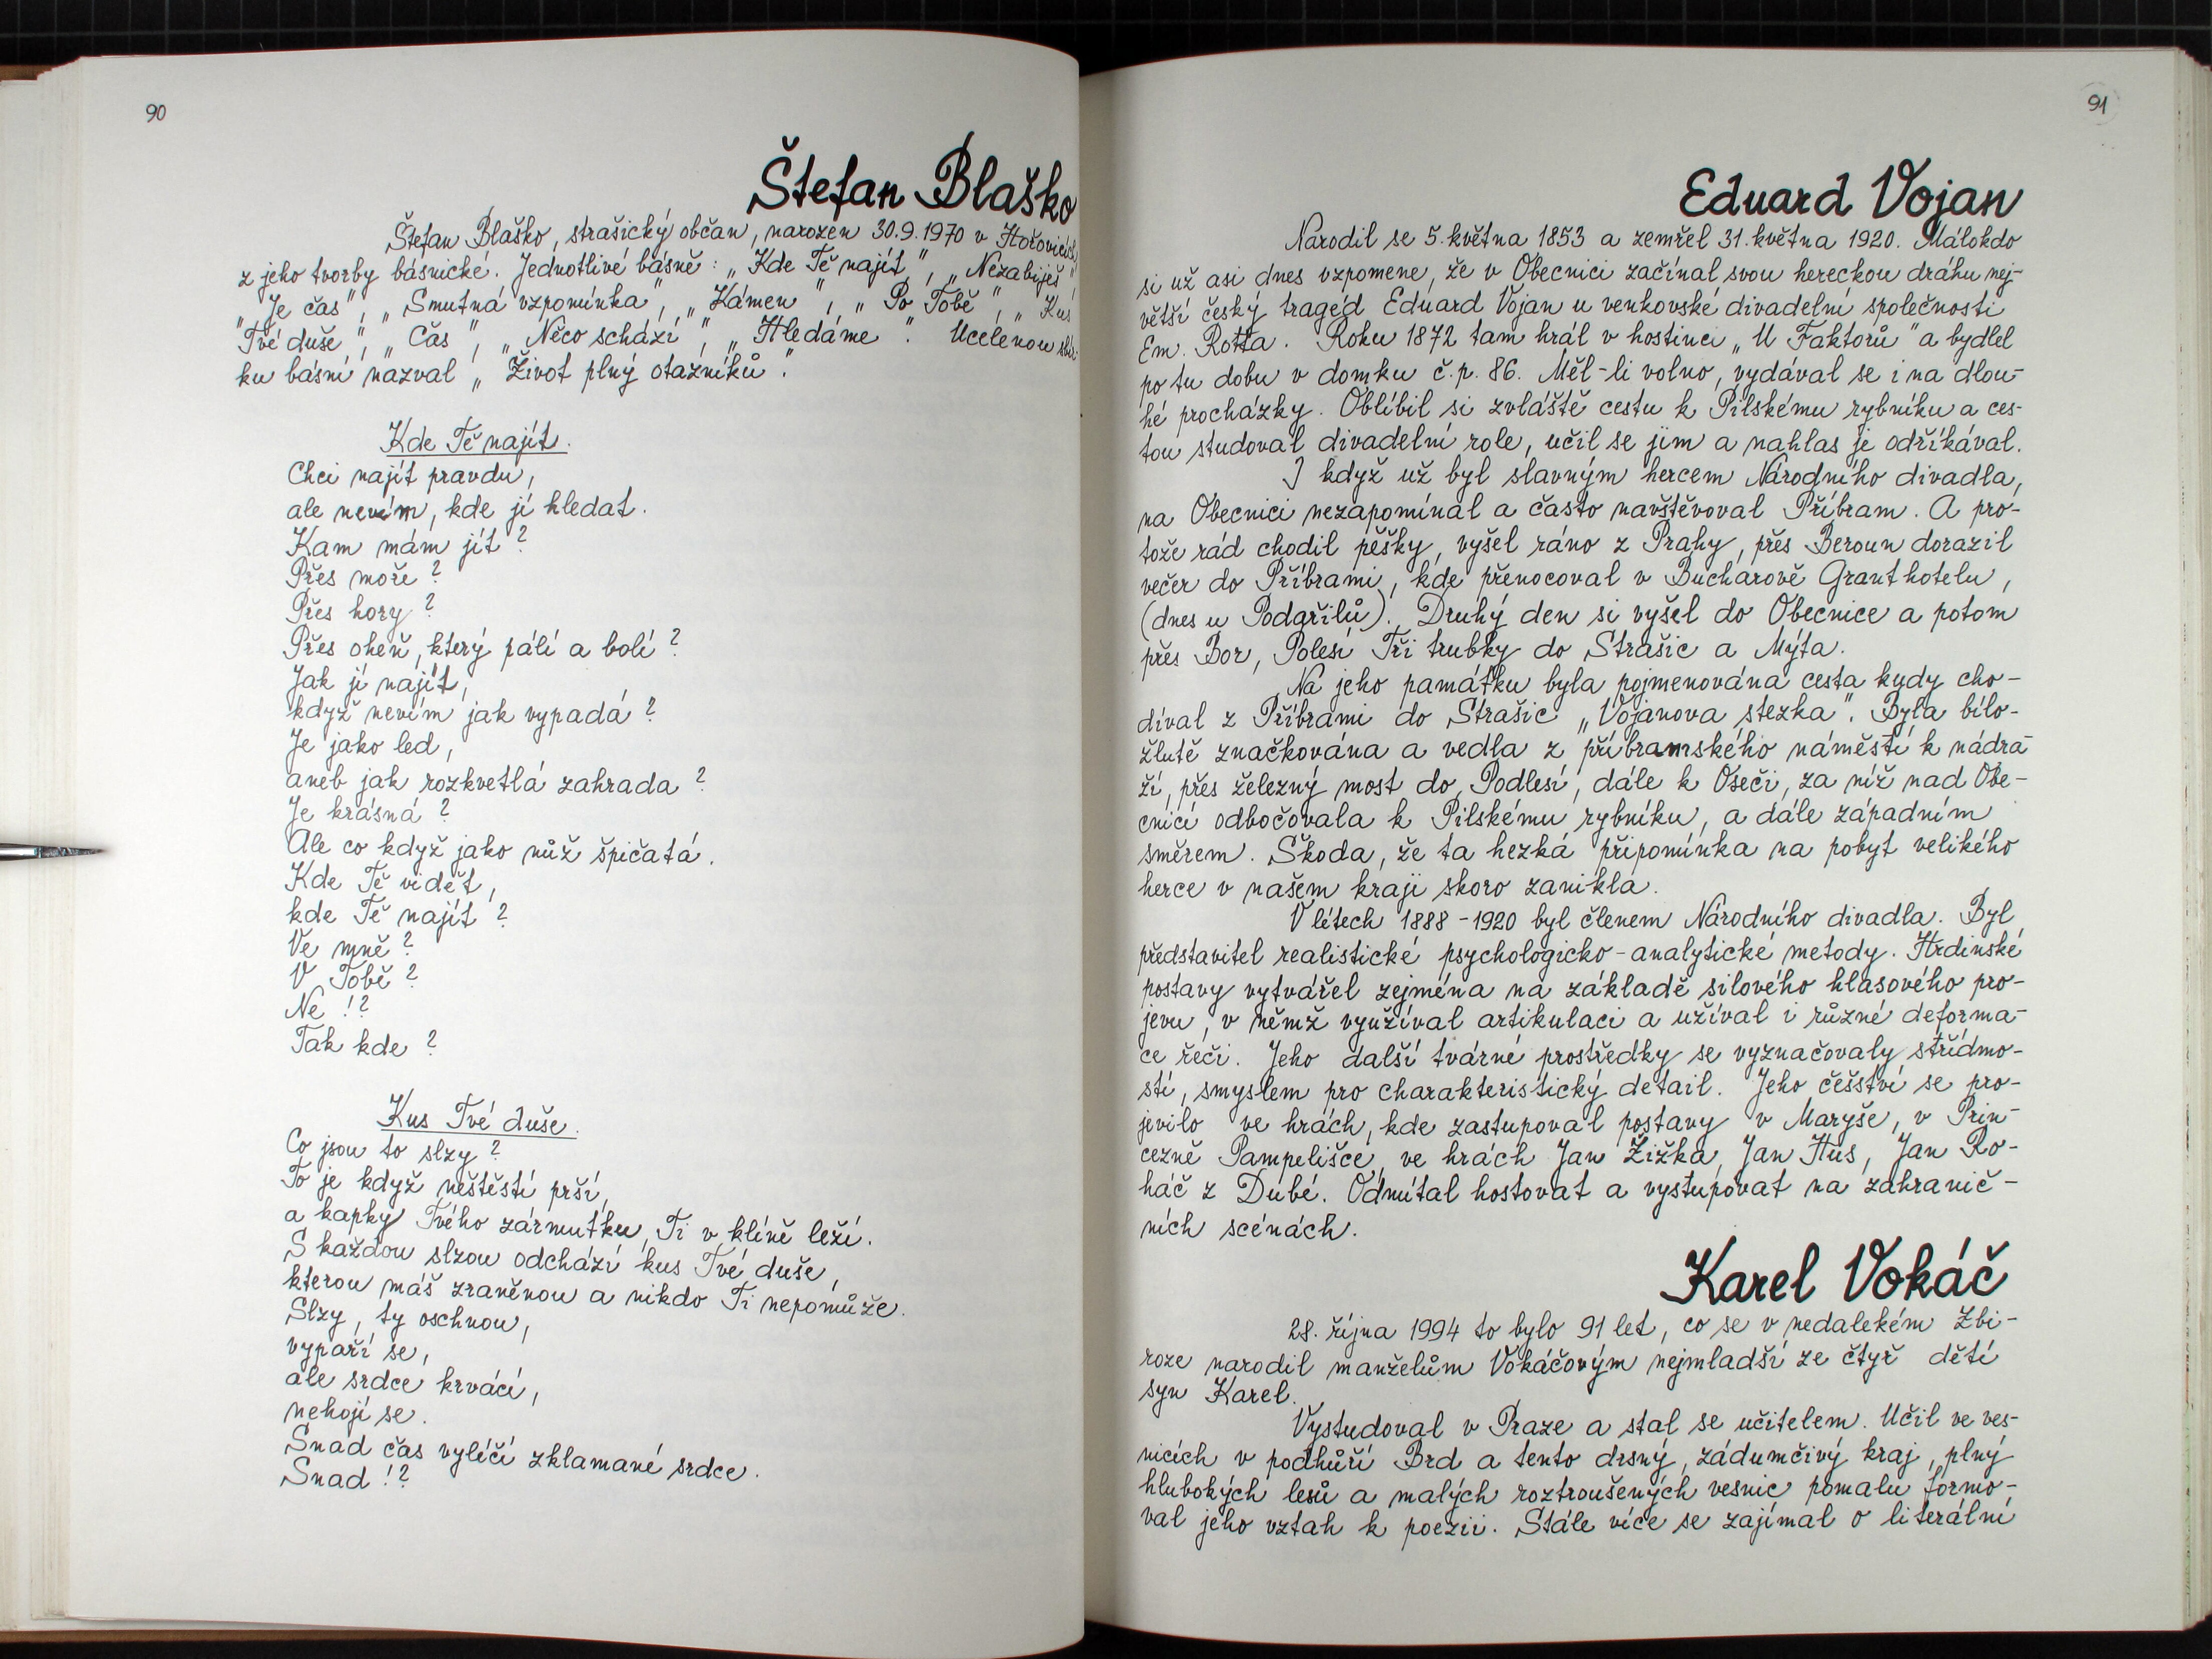 90
Štefan Blaško
Štefan Blaško, strašický občan, narozen 30.9.1970 v Hořovicích,
z jeho tvorby básnické. Jednotlivé básně: „Kde Tě najít", „Nezabiješ",
„Je čas", „Smutná vzpomínka", „Kámen", „Po Tobě", „Kus
Tvé duše", „Čas", „Něco schází", „Hledáme". Ucelenou sbír-
ku básní nazval „Život plný otazníků".
Kde Tě najít.
Chci najít pravdu,
ale nevím, kde ji hledat.
Kam mám jít?
Přes moře?
Přes hory?
Přes oheň, který pálí a bolí?
Jak ji najít,
když nevím jak vypadá?
Je jako led,
aneb jak rozkvetlá zahrada?
Je krásná?
Ale co když jako nůž špičatá.
Kde Tě vidět,
kde Tě najít?
Ve mně?
V Tobě?
Ne!?
Tak kde?
Kus Tvé duše.
Co jsou to slzy?
To je když neštěstí prší,
a kapky Tvého zármutku, Ti v klíně leží.
S každou slzou odchází kus Tvé duše,
kterou máš zraněnou a nikdo Ti nepomůže.
Slzy, ty oschnou,
vypaří se,
ale srdce krvácí,
nehojí se.
Snad čas vyléčí zklamané srdce.
Snad!?
91
Eduard Vojan
Narodil se 5. května 1853 a zemřel 31. května 1920. Málokdo
si už asi dnes vzpomene, že v Obecnici začínal svou hereckou dráhu nej-
větší český tragéd Eduard Vojan u venkovské divadelní společnosti
Em. Rotta. Roku 1872 tam hrál v hostinci „U Faktorů" a bydlel
po tu dobu v domku č.p. 86. Měl-li volno, vydával se i na dlou-
hé procházky. Oblíbil si zvláště cestu k Pilskému rybníku a ces-
tou studoval divadelní role, učil se jim a nahlas je odříkával.
I když už byl slavným hercem Národního divadla,
na Obecnici nezapomínal a často navštěvoval Příbram. A pro-
tože rád chodil pěšky, vyšel ráno z Prahy, přes Beroun dorazil
večer do Příbrami, kde přenocoval v Bucharově Granthotelu,
(dnes u Podařilů). Druhý den si vyšel do Obecnice a potom
přes Bor, Polesí Tři trubky do Strašic a Mýta.
Na jeho památku byla pojmenována cesta kudy cho-
díval z Příbrami do Strašic „Vojanova stezka". Byla bílo-
žlutě značkována a vedla z příbramského náměstí k nádra-
ží, přes železný most do Podlesí, dále k Oseči, za níž nad Obe-
cnicí odbočovala k Pilskému rybníku, a dále západním
směrem. Škoda, že ta hezká připomínka na pobyt velikého
herce v našem kraji skoro zanikla.
V létech 1888-1920 byl členem Národního divadla. Byl
představitel realistické psychologicko-analytické metody. Hrdinské
postavy vytvářel zejména na základě silového hlasového pro-
jevu, v němž využíval artikulaci a užíval i různé deforma-
ce řeči. Jeho další tvárné prostředky se vyznačovaly střídmo-
stí, smyslem pro charakteristický detail. Jeho češství se pro-
jevilo ve hrách, kde zastupoval postavy v Maryše, v Prin-
cezně Pampelišce, ve hrách Jan Žižka, Jan Hus, Jan Ro-
háč z Dubé. Odmítal hostovat a vystupovat na zahranič-
ních scénách.
Karel Vokáč
28. října 1994 to bylo 91 let, co se v nedalekém Zbi-
roze narodil manželům Vokáčovým nejmladší ze čtyř dětí
syn Karel.
Vystudoval v Praze a stal se učitelem. Učil ve ves-
nicích v podhůří Brd a tento drsný, zádumčivý kraj, plný
hlubokých lesů a malých roztroušených vesnic pomalu formo-
val jeho vztah k poezii. Stále více se zajímal o literální